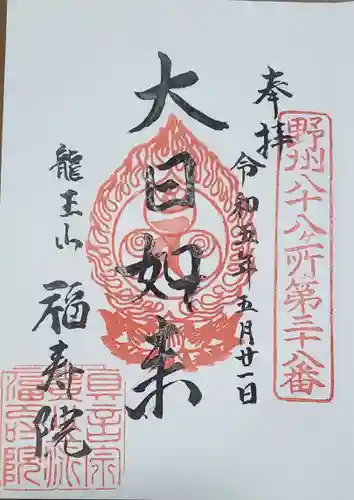 野州八十八ヶ所第三十八番
奉拝
令和五年五月廿一日
大日如来
龍王山
福寿院